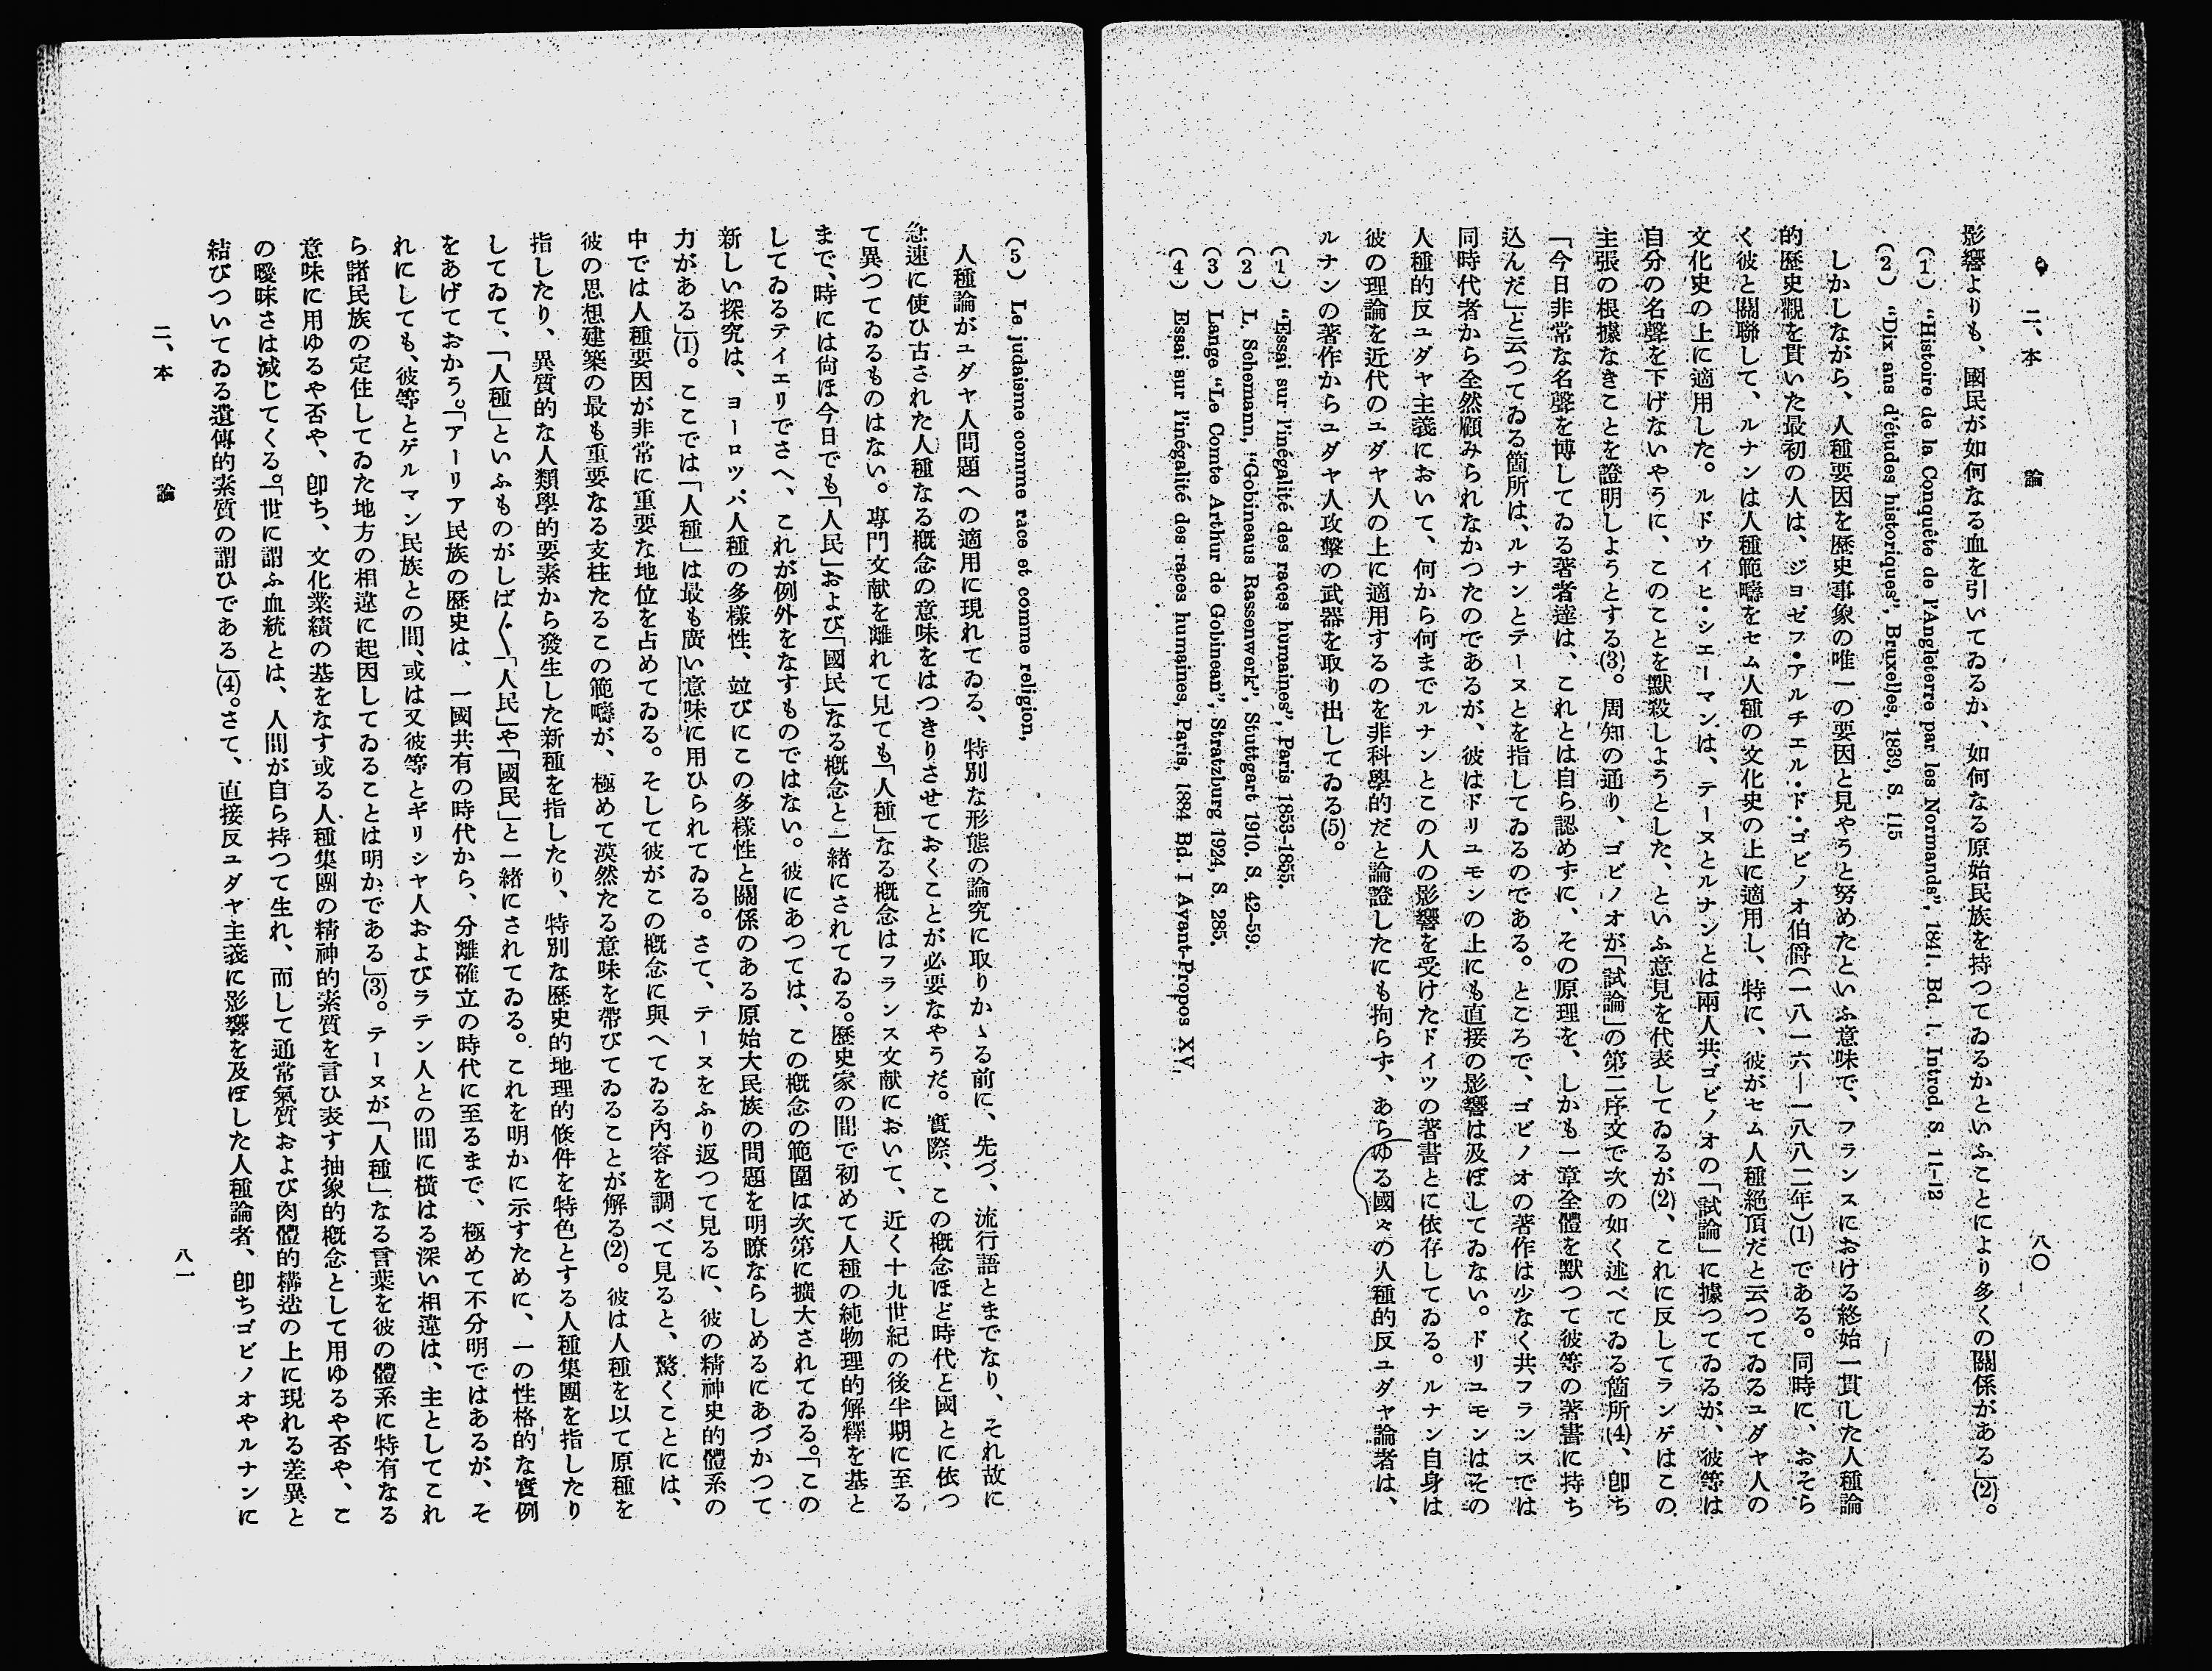 二、本論
八〇
影響よりも、國民が如何なる血を引いてゐるか、如何なる原始民族を持つてゐるかといふことにより多くの關係がある」(2)。
(1) “Histoire de la Conquête de l'Angleterre par les Normands”, 1841. Bd. 1. Introd, S. 11-12
(2) “Dix ans d'études historiques”, Bruxelles, 1839, S. 115
しかしながら、人種要因を歷史事象の唯一の要因と見やうと努めたといふ意味で、フランスにおける終始一貫した人種論
的歷史觀を貫いた最初の人は、ジヨゼフ・アルチエル・ド・ゴビノオ伯爵(一八一六―一八八二年)(1)である。同時に、おそら
く彼と關聯して、ルナンは人種範疇をセム人種の文化史の上に適用し、特に、彼がセム人種絕頂だと云つてゐるユダヤ人の
文化史の上に適用した。ルドウイヒ・シエーマンは、テーヌとルナンとは兩人共ゴビノオの「試論」に據つてゐるが、彼等は
自分の名聲を下げないやうに、このことを默殺しようとした、といふ意見を代表してゐるが(2)、これに反してランゲはこの
主張の根據なきことを證明しようとする(3)。周知の通り、ゴビノオが「試論」の第二序文で次の如く述べてゐる箇所(4)、卽ち
「今日非常な名聲を博してゐる著者達は、これとは自ら認めずに、その原理を、しかも一章全體を默つて彼等の著書に持ち
込んだ」と云つてゐる箇所は、ルナンとテーヌとを指してゐるのである。ところで、ゴビノオの著作は少なく共フランスでは
同時代者から全然顧みられなかつたのであるが、彼はドリユモンの上にも直接の影響は及ぼしてゐない。ドリユモンはその
人種的反ユダヤ主義において、何から何までルナンとこの人の影響を受けたドイツの著書とに依存してゐる。ルナン自身は
彼の理論を近代のユダヤ人の上に適用するのを非科學的だと論證したにも拘らず、あらゆる國々の人種的反ユダヤ論者は、
ルナンの著作からユダヤ人攻擊の武器を取り出してゐる(5)。
(1) “Essai sur l'inégalité des races humaines”, Paris 1853-1855.
(2) L. Schemann, “Gobineaus Rassenwerk”, Stuttgart 1910. S. 42-59.
(3) Lange “Le Comte Arthur de Gobinean”, Stratzburg 1924, S. 285.
(4) Essai sur l'inégalité des races humaines, Paris, 1884 Bd. I Avant-Propos XV.
(5) Le judaisme comme race et comme religion,
人種論がユダヤ人問題への適用に現れてゐる、特別な形態の論究に取りかゝる前に、先づ、流行語とまでなり、それ故に
急速に使ひ古された人種なる槪念の意味をはつきりさせておくことが必要なやうだ。實際、この槪念ほど時代と國とに依つ
て異つてゐるものはない。專門文献を離れて見ても「人種」なる槪念はフランス文献において、近く十九世紀の後半期に至る
まで、時には尙ほ今日でも「人民」および「國民」なる槪念と一緒にされてゐる。歷史家の間で初めて人種の純物理的解釋を基と
してゐるテイエリでさへ、これが例外をなすものではない。彼にあつては、この槪念の範圍は次第に擴大されてゐる。「この
新しい探究は、ヨーロツパ人種の多樣性、竝びにこの多樣性と關係のある原始大民族の問題を明瞭ならしめるにあづかつて
力がある」(1)。ここでは「人種」は最も廣い意味に用ひられてゐる。さて、テーヌをふり返つて見るに、彼の精神史的體系の
中では人種要因が非常に重要な地位を占めてゐる。そして彼がこの槪念に與へてゐる內容を調べて見ると、驚くことには、
彼の思想建築の最も重要なる支柱たるこの範疇が、極めて漠然たる意味を帶びてゐることが解る(2)。彼は人種を以て原種を
指したり、異質的な人類學的要素から發生した新種を指したり、特別な歷史的地理的條件を特色とする人種集團を指したり
してゐて、「人種」といふものがしば〱「人民」や「國民」と一緒にされてゐる。これを明かに示すために、一の性格的な實例
をあげておかう。「アーリア民族の歷史は、一國共有の時代から、分離確立の時代に至るまで、極めて不分明ではあるが、そ
れにしても、彼等とゲルマン民族との間、或は又彼等とギリシヤ人およびラテン人との間に橫はる深い相違は、主としてこれ
ら諸民族の定住してゐた地方の相違に起因してゐることは明かである」(3)。テーヌが「人種」なる言葉を彼の體系に特有なる
意味に用ゆるや否や、卽ち、文化業績の基をなす或る人種集團の精神的素質を言ひ表す抽象的槪念として用ゆるや否や、こ
の曖昧さは減じてくる。「世に謂ふ血統とは、人間が自ら持つて生れ、而して通常氣質および肉體的構造の上に現れる差異と
結びついてゐる遺傳的素質の謂ひである」(4)。さて、直接反ユダヤ主義に影響を及ぼした人種論者、卽ちゴビノオやルナンに
二、本論
八一